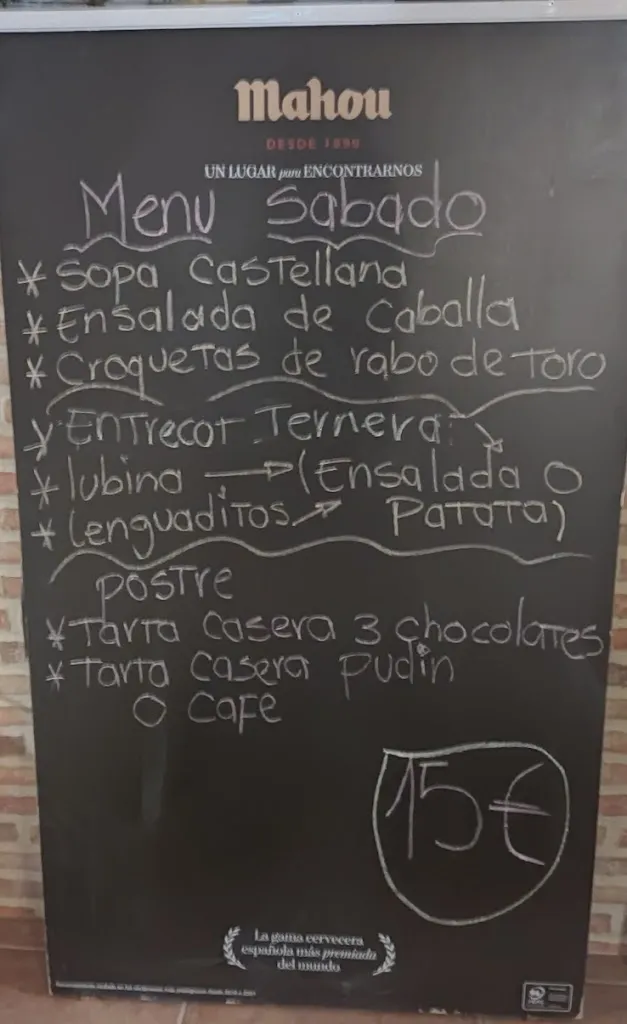 Mahou
DESDE 1890
UN LUGAR para ENCONTRARNOS
Menu Sabado
* Sopa Castellana
* Ensalada de Caballa
* Croquetas de rabo de Toro
* Entrecot Ternera
* lubina → (Ensalada O
* lenguaditos Patata)
postre
* Tarta Casera 3 chocolates
* Tarta Casera pudin
O Cafe
15€
La gama cervecera
española más premiada
del mundo